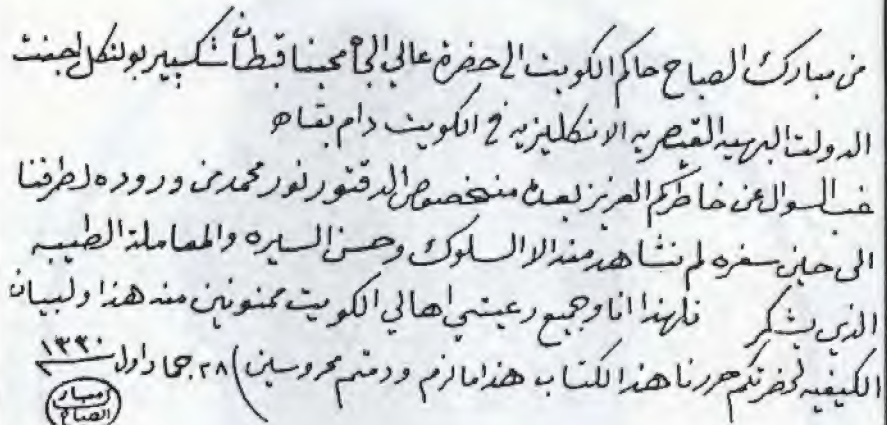 من مبارك الصباح حاكم الكويت الى حضرة عالي الجاه محبنا قبطان شكسبير بولتكل اجنت
الدولت البهيه القيصريه الانكليزيه في الكويت دام بقاه
غب السوال عن خاطركم العزيز بعده منخصوص الدقتور نور محمد من وروده لطرفنا
الى حين سفره لم نشاهد منه الا السلوك وحسن السيره والمعاملة الطيبه
الذي يشكر فلهذا انا وجميع رعيتي اهالي الكويت ممنونين منه هذا ولبيان
الكيفيه لحضرتكم حررنا هذا الكتاب هذا مالزم ودمتم محروسين) ٢٨ جماد اول ١٣٣٠
مبارك الصباح